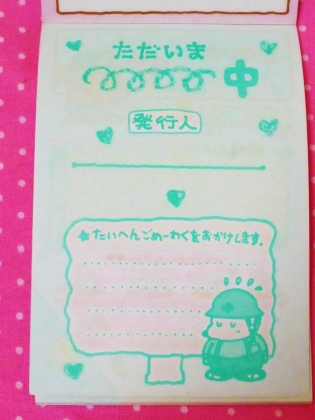 ただいま
中
発行人
★たいへんごめーわくをおかけします。